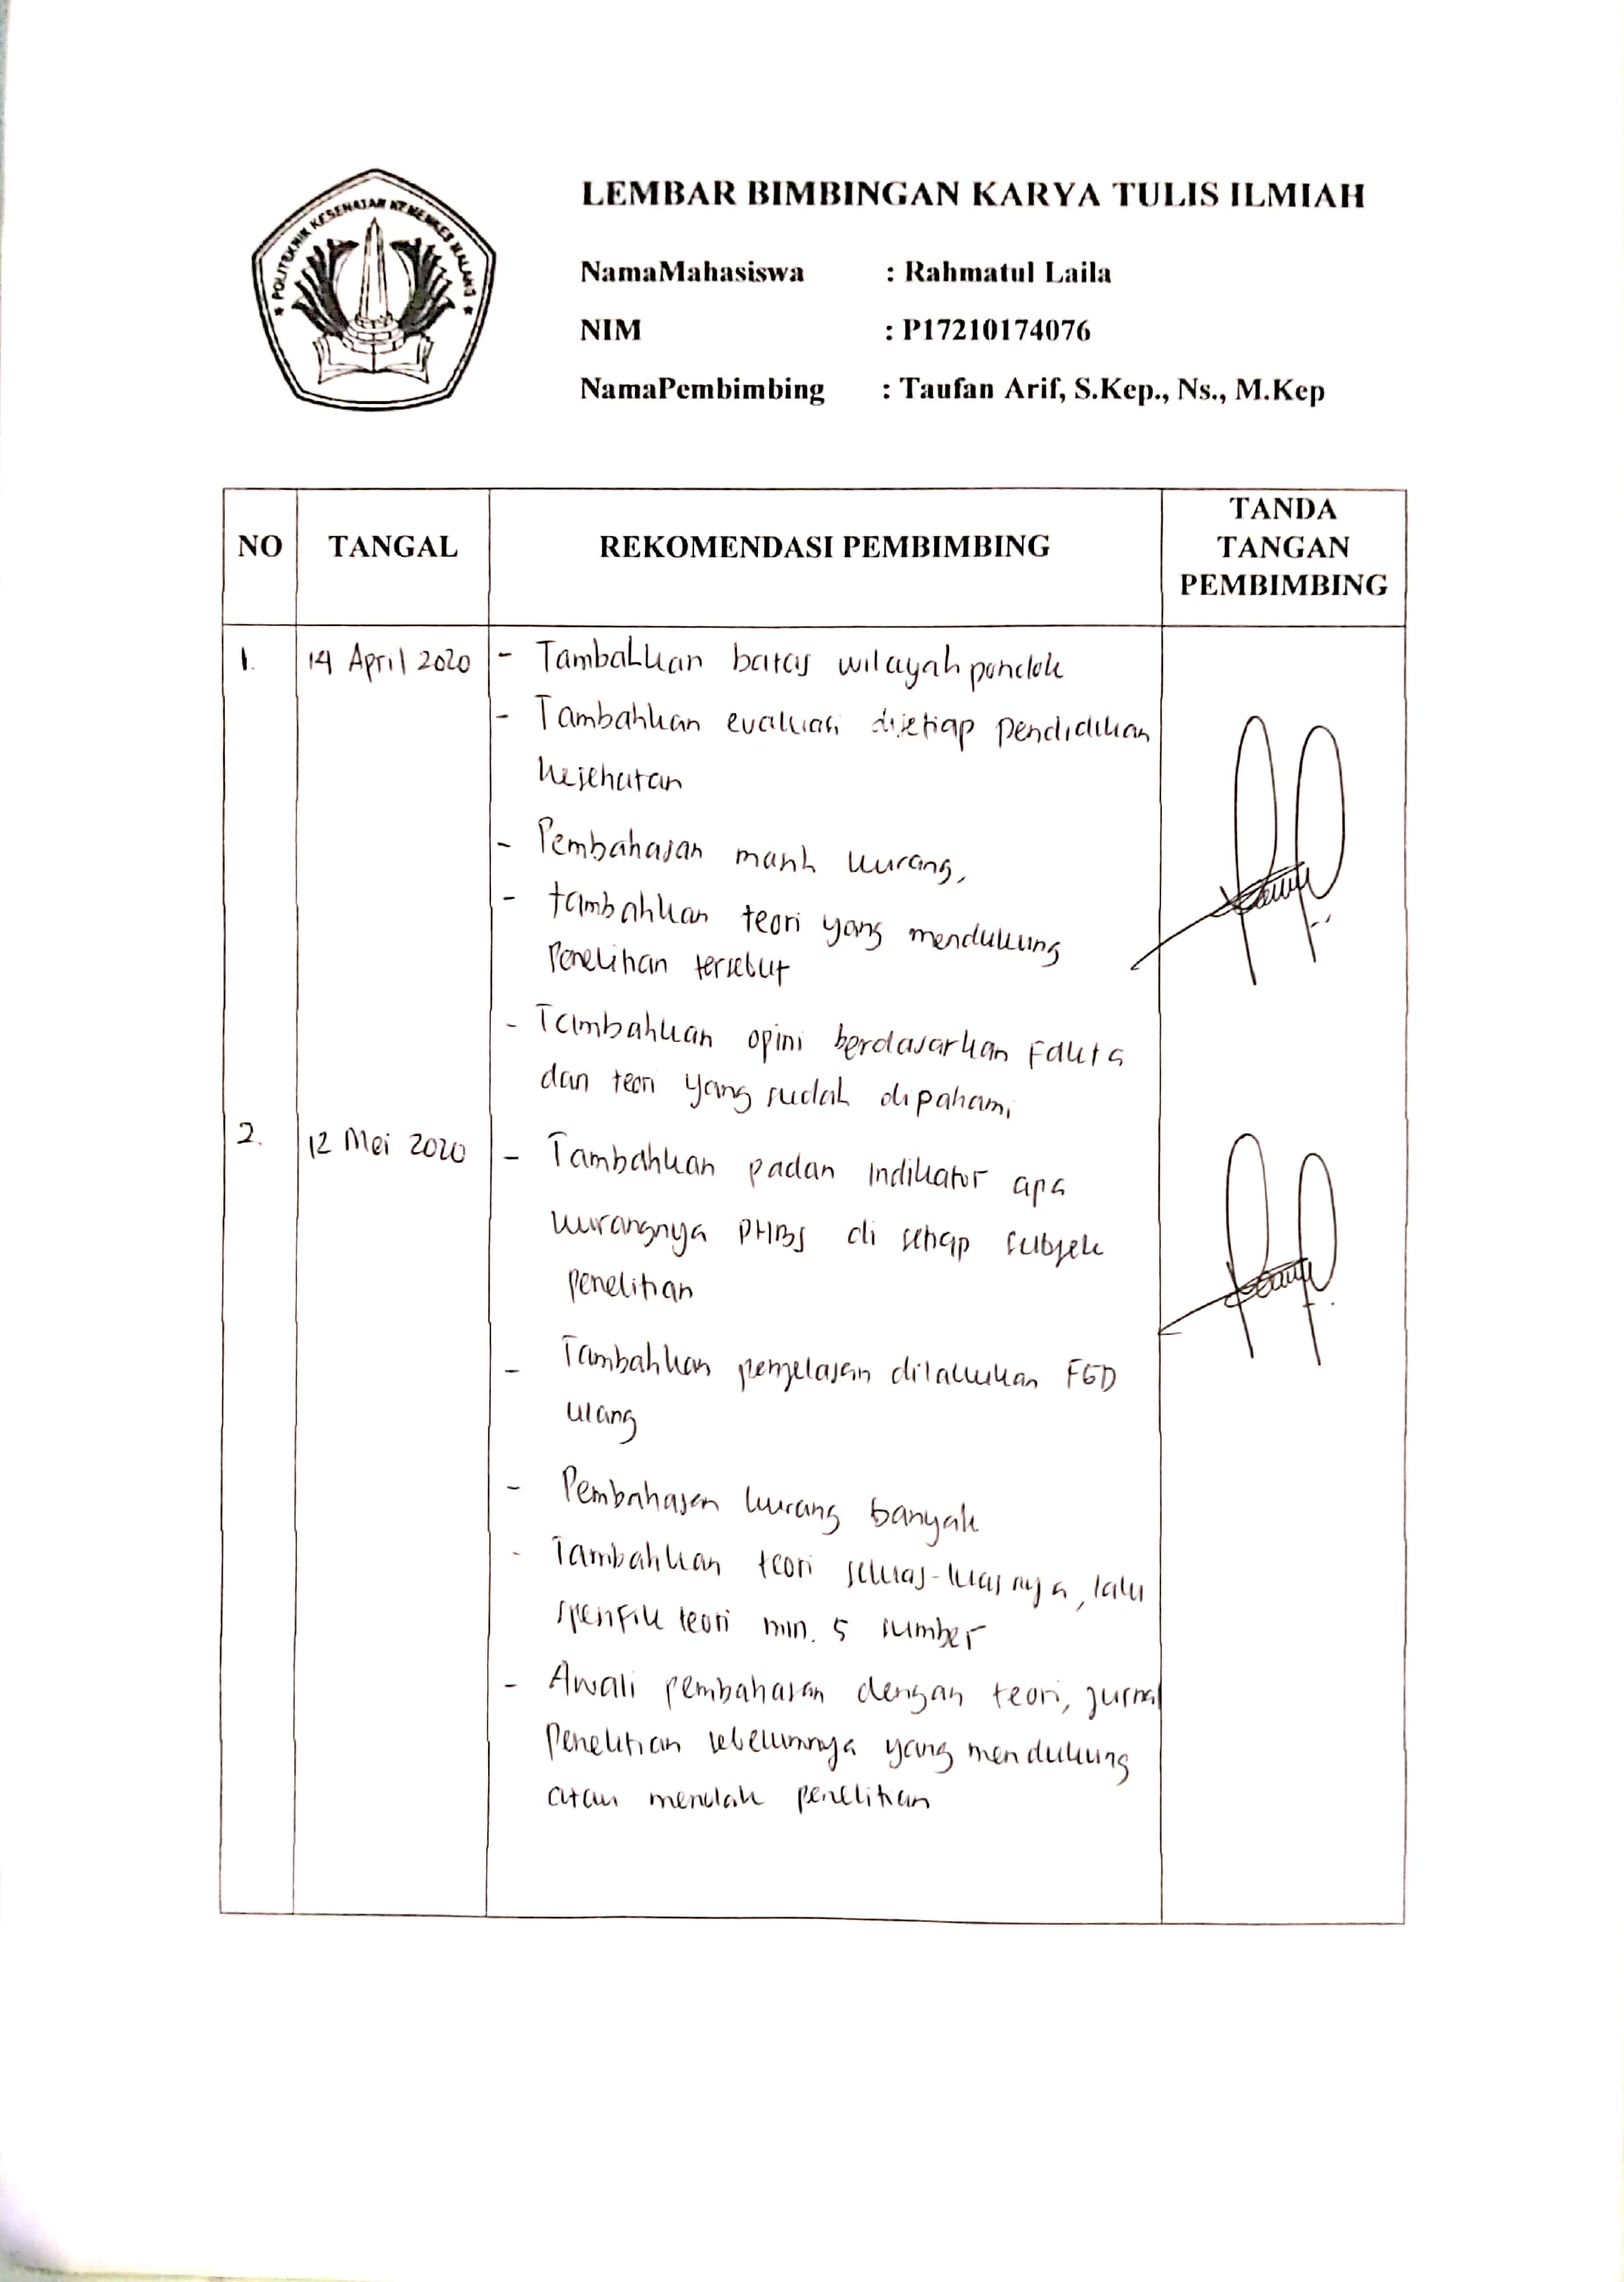 POLITEKNIK KESEHATAN KEMENKES MALANG
LEMBAR BIMBINGAN KARYA TULIS ILMIAH
NamaMahasiswa : Rahmatul Laila
NIM : P17210174076
NamaPembimbing : Taufan Arif, S.Kep., Ns., M.Kep
NO TANGAL REKOMENDASI PEMBIMBING TANDA TANGAN PEMBIMBING
1. 14 April 2020 - Tambahkan batas wilayah pondok
- Tambahkan evaluasi disetiap pendidikan
kesehatan
- Pembahasan masih kurang,
- tambahkan teori yang mendukung
Penelitian tersebut
- Tambahkan opini berdasarkan Fakta
dan teori yang sudah dipahami
2. 12 Mei 2020 - Tambahkan padan indikator apa
kurangnya PHBS di setiap subjek
penelitian
- Tambahkan penjelasan dilakukan FGD
ulang
- Pembahasan kurang banyak
- Tambahkan teori seluas-luasnya, lalu
spesifik teori min. 5 sumber
- Awali pembahasan dengan teori, jurnal
Penelitian sebelumnya yang mendukung
atau menolak penelitian